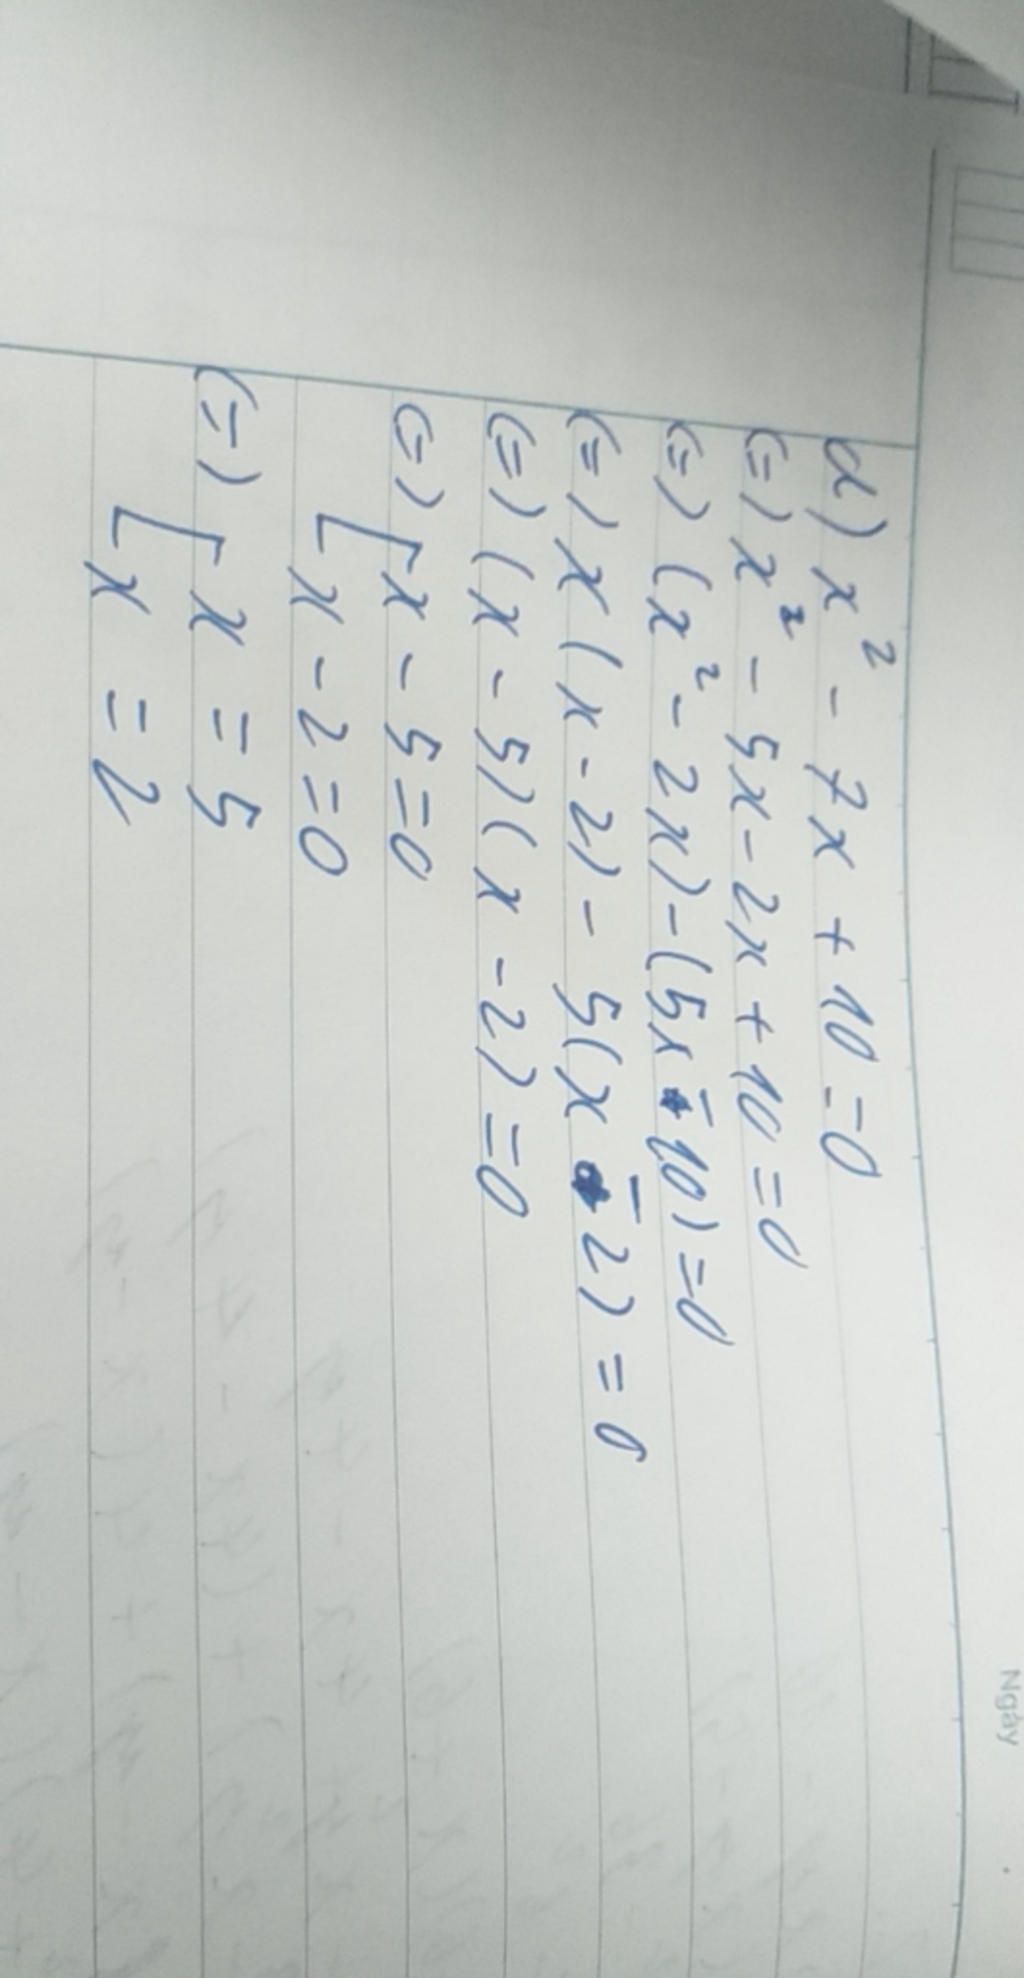 Ngày
d) x² - 7x + 10 = 0
(=) x² - 5x - 2x + 10 = 0
(=) (x² - 2x) - (5x - 10) = 0
(=) x(x - 2) - 5(x - 2) = 0
(=) (x - 5)(x - 2) = 0
(=) [x - 5 = 0
[x - 2 = 0
(=) [x = 5
[x = 2